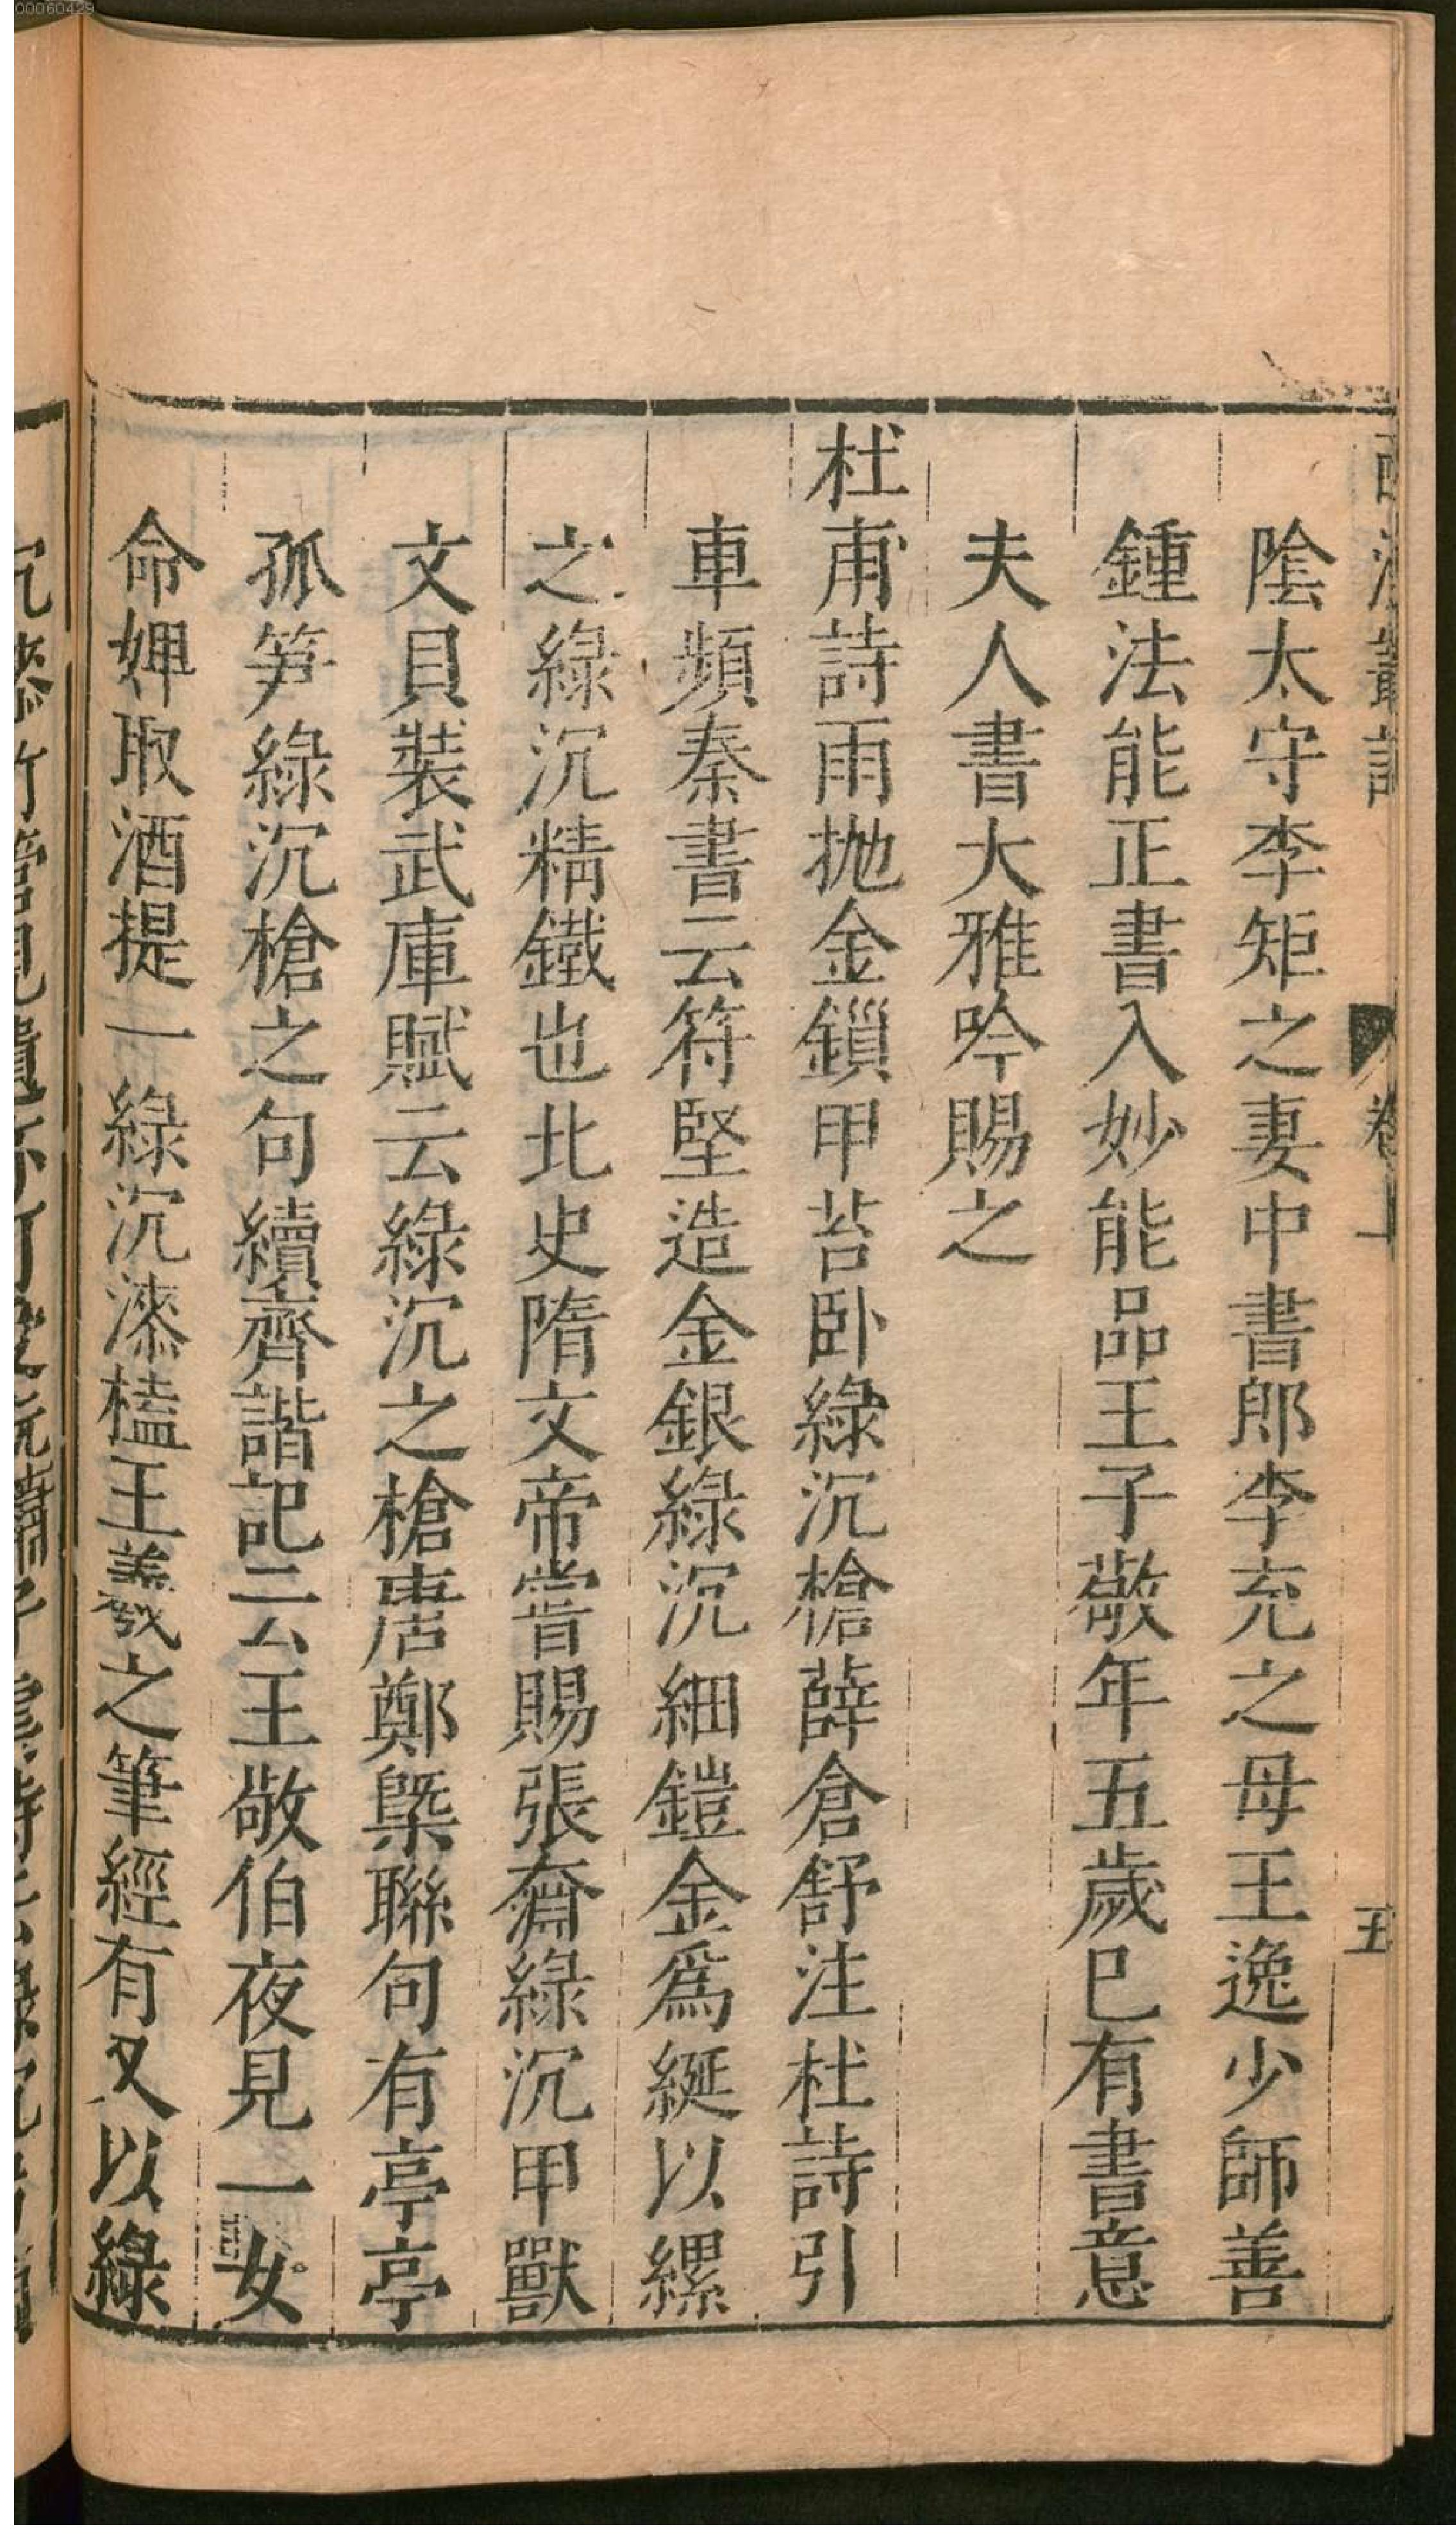 00060429
陰太守李矩之妻中書郎李充之母王逸少師善
鍾法能正書入妙能品王子敬年五歲巳有書意
夫人書大雅吟賜之
杜甫詩雨抛金鎖甲苔卧綠沉槍薛倉舒注杜詩引
車頻秦書云符堅造金銀綠沉細鎧金爲綖以縲
之綠沉精鐵也北史隋文帝嘗賜張奫綠沉甲獸
文貝裝武庫賦云綠沉之槍唐鄭槩聯句有亭亭
孤笋綠沉槍之句續齊諧記云王敬伯夜見一女
命婢取酒提一綠沉漆榼王羲之筆經有又以綠